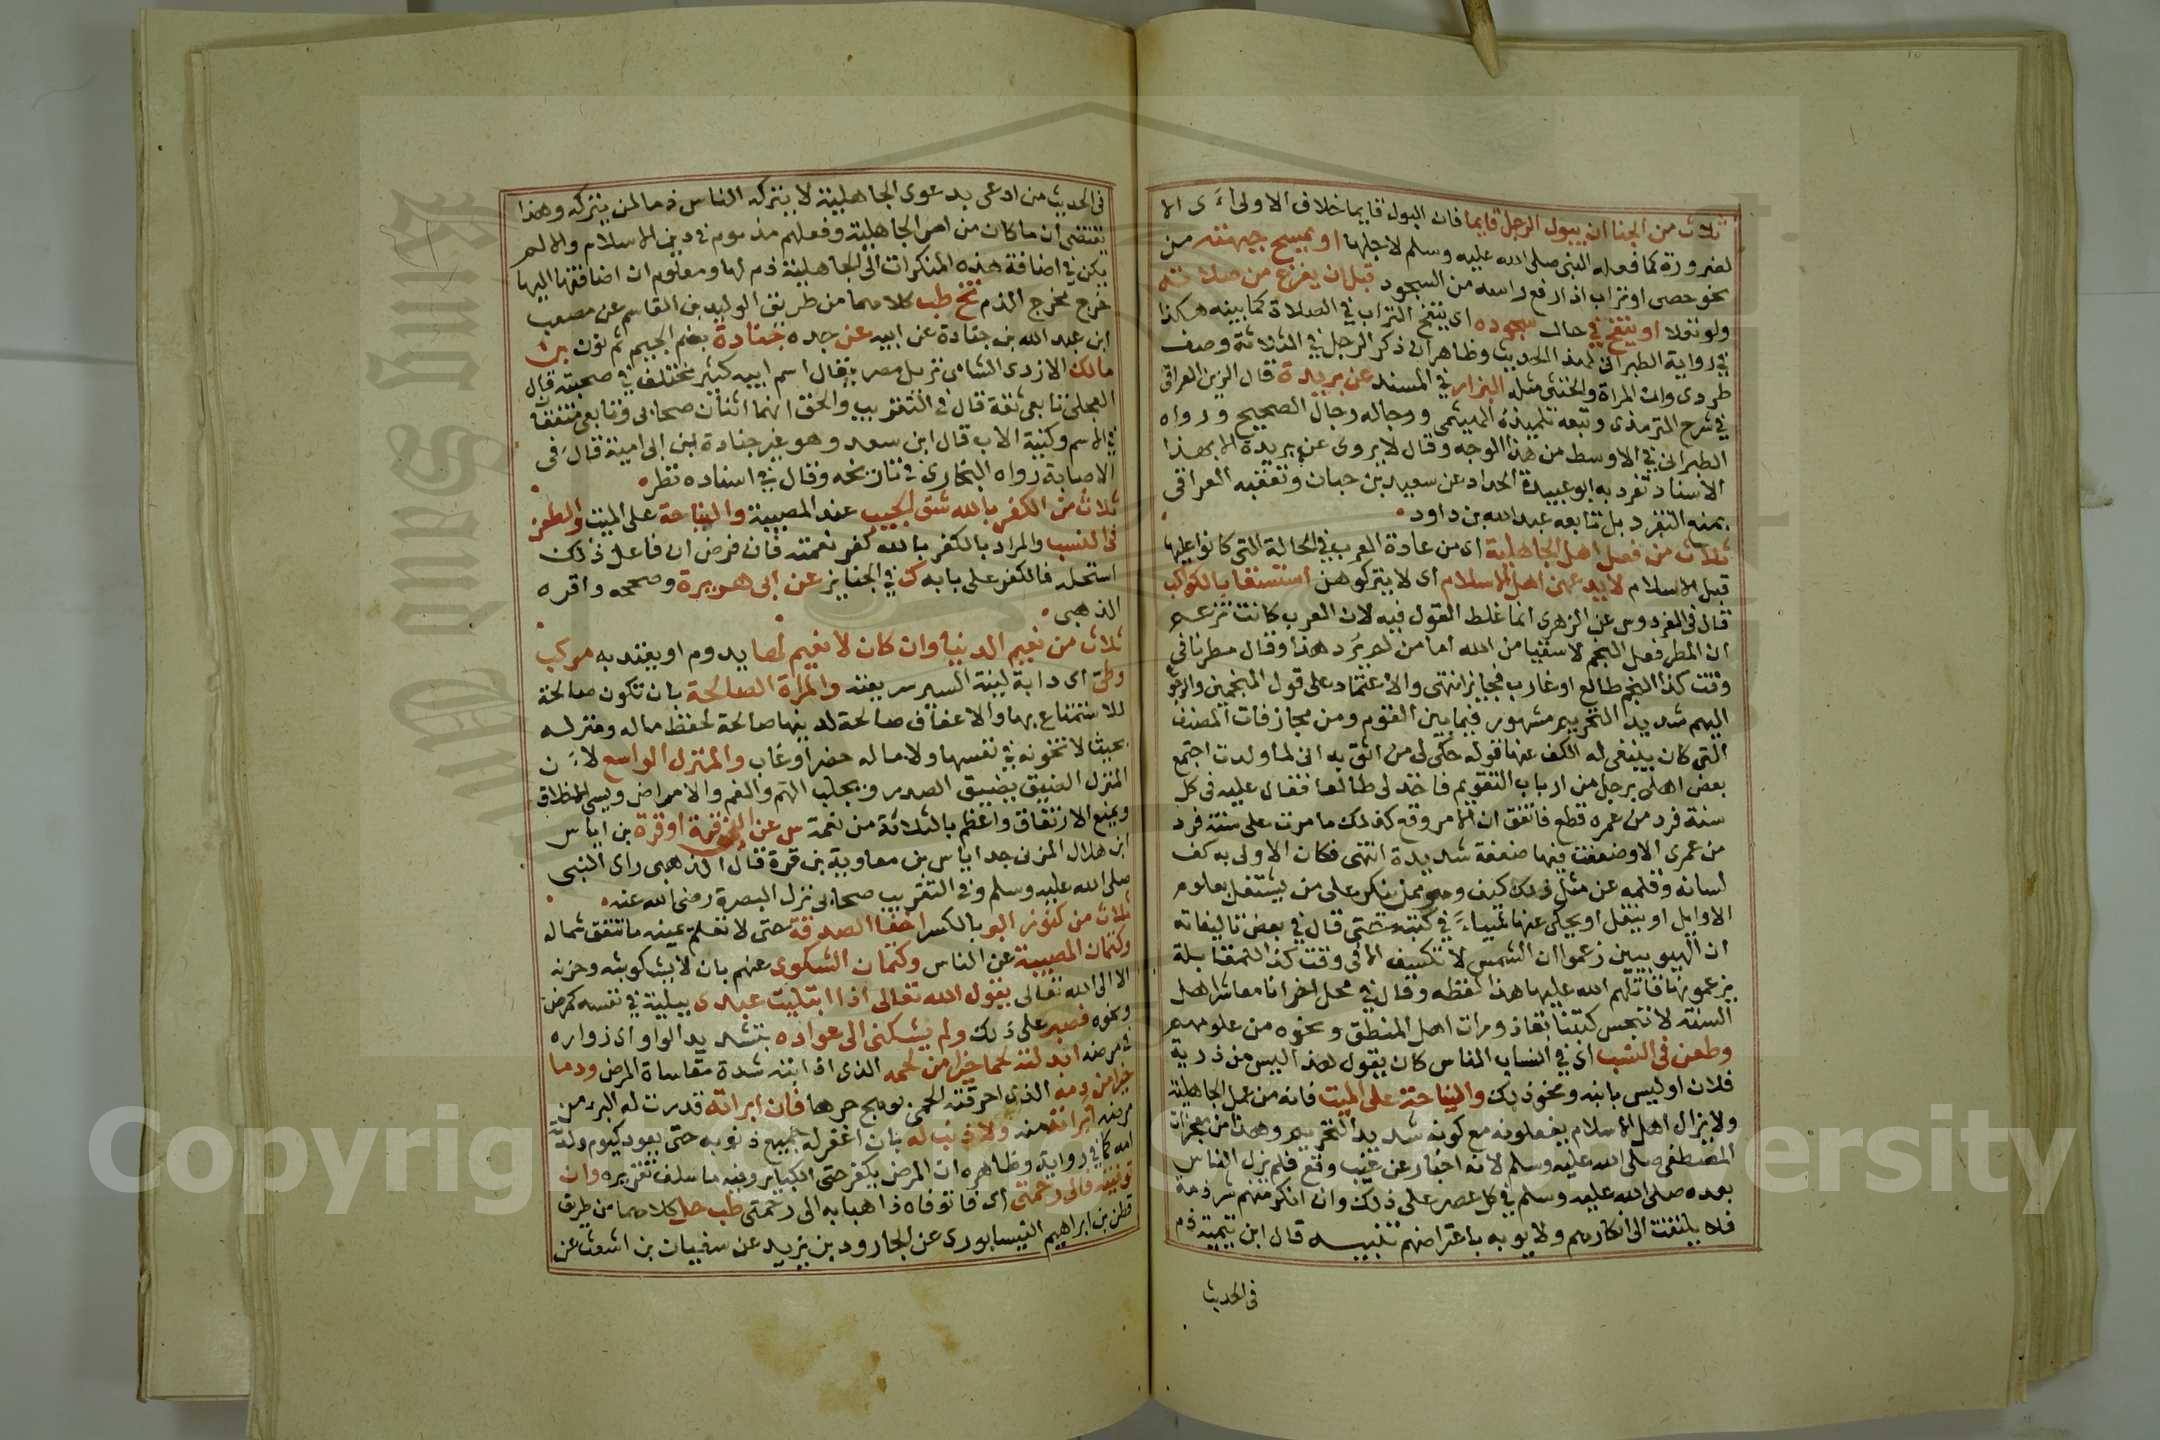 ثلاث من الجفا ان يبول الرجل قايما فان البول قايما خلاف الاولى اى الا
لضرورة كما فعله النبى صلى الله عليه وسلم لاجلها او يمسح جبهته من
نحو حصى او تراب اذا رفع راسه من السجود قبل ان يفرغ من صلاته
ولو نفلا او ينفخ في حال سجوده اى ينفخ التراب في الصلاة كما بينه هكذا
في رواية الطبرانى لهذا الحديث وظاهر ان ذكر الرجل في الثلاثة وصف
طردى وان المراة والخنثى مثله البزار في المسند عن بريدة قال الزين العراقى
في شرح الترمذى وتبعه تلميذه الهيثمى ورجاله رجال الصحيح ورواه
الطبرانى في الاوسط من هذا الوجه وقال لا يروى عن بريدة الا بهذا
الاسناد تفرد به ابو عبيدة الحداد عن سعيد بن حبان وتعقبه العراقى
بمنع التفرد بل تابعه عبد الله بن داود
ثلاث من فعل اهل الجاهلية اى من عادة العرب في الحالة التى كانوا عليها
قبل الاسلام لا يدعهن اهل الاسلام اى لا يتركوهن استسقا بالكواكب
قال فى الفردوس عن الزهرى انما غلط القول فيه لان العرب كانت تزعم
ان المطر فعل النجم لا سقيا من الله اما من لم يرد هذا وقال مطرنا فى
وقت كذا النجم طالع او غارب فجايز انتهى والاعتماد على قول المنجمين والرجوع
اليهم شديد التحريم مشهور فيما بين القوم ومن مجازفات المصنف
التى كان ينبغى له الكف عنها قوله حكى لى من اثق به انى لما ولدت اجتمع
بعض اهلى برجل من ارباب التقويم فاخذ لى طالعا فقال عليه فى كل
سنة فرد من عمره قطع فاتفق ان الامر وقع كذلك ما مرت على سنة فرد
من عمرى الا وضعفت فيها ضعفة شديدة انتهى فكان الاولى به كف
لسانه وقلمه عن مثل ذلك كيف وهو ممن ينكر على من يشتغل بعلوم
الاوايل او ينقل او يحكى عنها شياء في كتبه حتى قال في بعض تاليفاته
ان الهيوبيين زعموا ان الشمس لا تنكسف الا فى وقت كذا لمقابلة
يزعمونها قاتلهم الله عليها هذا لفظه وقال في محل اخر انا معاشر اهل
السنة لا ننجس كتبنا بقاذورات اهل المنطق ونحوه من علومهم
وطعن فى النسب اى في انساب الناس كان يقول هذا ليس من ذرية
فلان او ليس بابنه ونحو ذلك والنياحة على الميت فانه من عمل الجاهلية
ولا يزال اهل الاسلام يفعلونه مع كونه شديد التحريم وهذا من معجزات
المصطفى صلى الله عليه وسلم لانه اخبار عن غيب وقع فلم يزل الناس
بعده صلى الله عليه وسلم في كل عصر على ذلك وان انكر منهم شرذمة
فلا يلتفت الى انكارهم ولا يوبه باعتراضهم تنبيه قال ابن تيمية ذم
فى الحديث
فى الحديث من ادعى بدعوى الجاهلية لا يتركه الناس ذما لمن يتركه وهذا
يقتضى ان ما كان من امر الجاهلية وفعلهم مذموم في دين الاسلام والا لم
يكن في اضافة هذه المنكرات الى الجاهلية ذم لها ومعلوم ان اضافتها اليها
خرج مخرج الذم تخ طب كلاهما من طريق الوليد بن القاسم عن مصعب
ابن عبد الله بن جنادة عن ابيه عن جده جنادة بضم الجيم ثم نون بن
مالك الازدى الشامى نزيل مصر يقال اسم ابيه كثير مختلف في صحبته قال
العجلى تابعى ثقة قال في التقريب والحق انهما اثنان صحابى وتابعى متفقان
في الاسم وكنية الاب قال ابن سعد وهو غير جنادة ابن ابى امية قال فى
الاصابة رواه البخارى في تاريخه وقال في اسناده نظر
ثلاث من الكفر بالله شق الجيب عند المصيبة والنياحة على الميت والطعن
فى النسب والمراد بالكفر بالله كفر نعمته فان فرض ان فاعل ذلك
استحله فالكفر على بابه ك في الجنايز عن ابى هريرة وصححه واقره
الذهبى
ثلاث من نعيم الدنيا وان كان لا نعيم لها يدوم او يعتد به مركب
وطى اى دابة لينة السير سريعته والمراة الصالحة بان تكون صالحة
للاستمتاع بها والاعفاف صالحة لدينها صالحة لحفظ ماله ومنزله
بحيث لا تخونه في نفسها ولا ماله حضر او غاب والمنزل الواسع لان
المنزل الضيق يضيق الصدر ويجلب الهم والغم والامراض ويسى الاخلاق
ويمنع الارتفاق واعظم بالثلاثة من نعمة س عن ابن قرة او قرة بن اياس
ابن هلال المزنى جد اياس بن معاوية بن قرة قال الذهبى راى النبى
صلى الله عليه وسلم وفى التقريب صحابى نزل البصرة رضى الله عنه
ثلاث من كنوز البر بالكسر اخفا الصدقة حتى لا تعلم يمينه ما تنفق شماله
وكتمان المصيبة عن الناس وكتمان الشكوى عنهم بان لا يشكو بثه وحزنه
الا الى الله تعالى يقول الله تعالى اذا ابتليت عبدى ببلية في نفسه كمرض
ونحوه فصبر على ذلك ولم يشكنى الى عواده بتشديد الواو اى زواره
في مرضه ابدلته لحما خيرا من لحمه الذى اذابته شدة مقاساة المرض ودما
خيرا من دمه الذى احرقته الحمى بوهج حرها فان ابراته قدرت له البرء من
مرضه ابراته منه ولا ذنب له بان اغفر له جميع ذنوبه حتى يعود كيوم ولدته
امه كما في رواية وظاهره ان المرض يكفر حتى الكباير وفيه ما سلف تقريره وان
توفيته فالى رحمتى اى فاتوفاه ذاهبا به الى رحمتى طب حل كلاهما من طريق
قطن بن ابراهيم النيسابورى عن الجارود بن يزيد عن سفيان بن اشعث عن